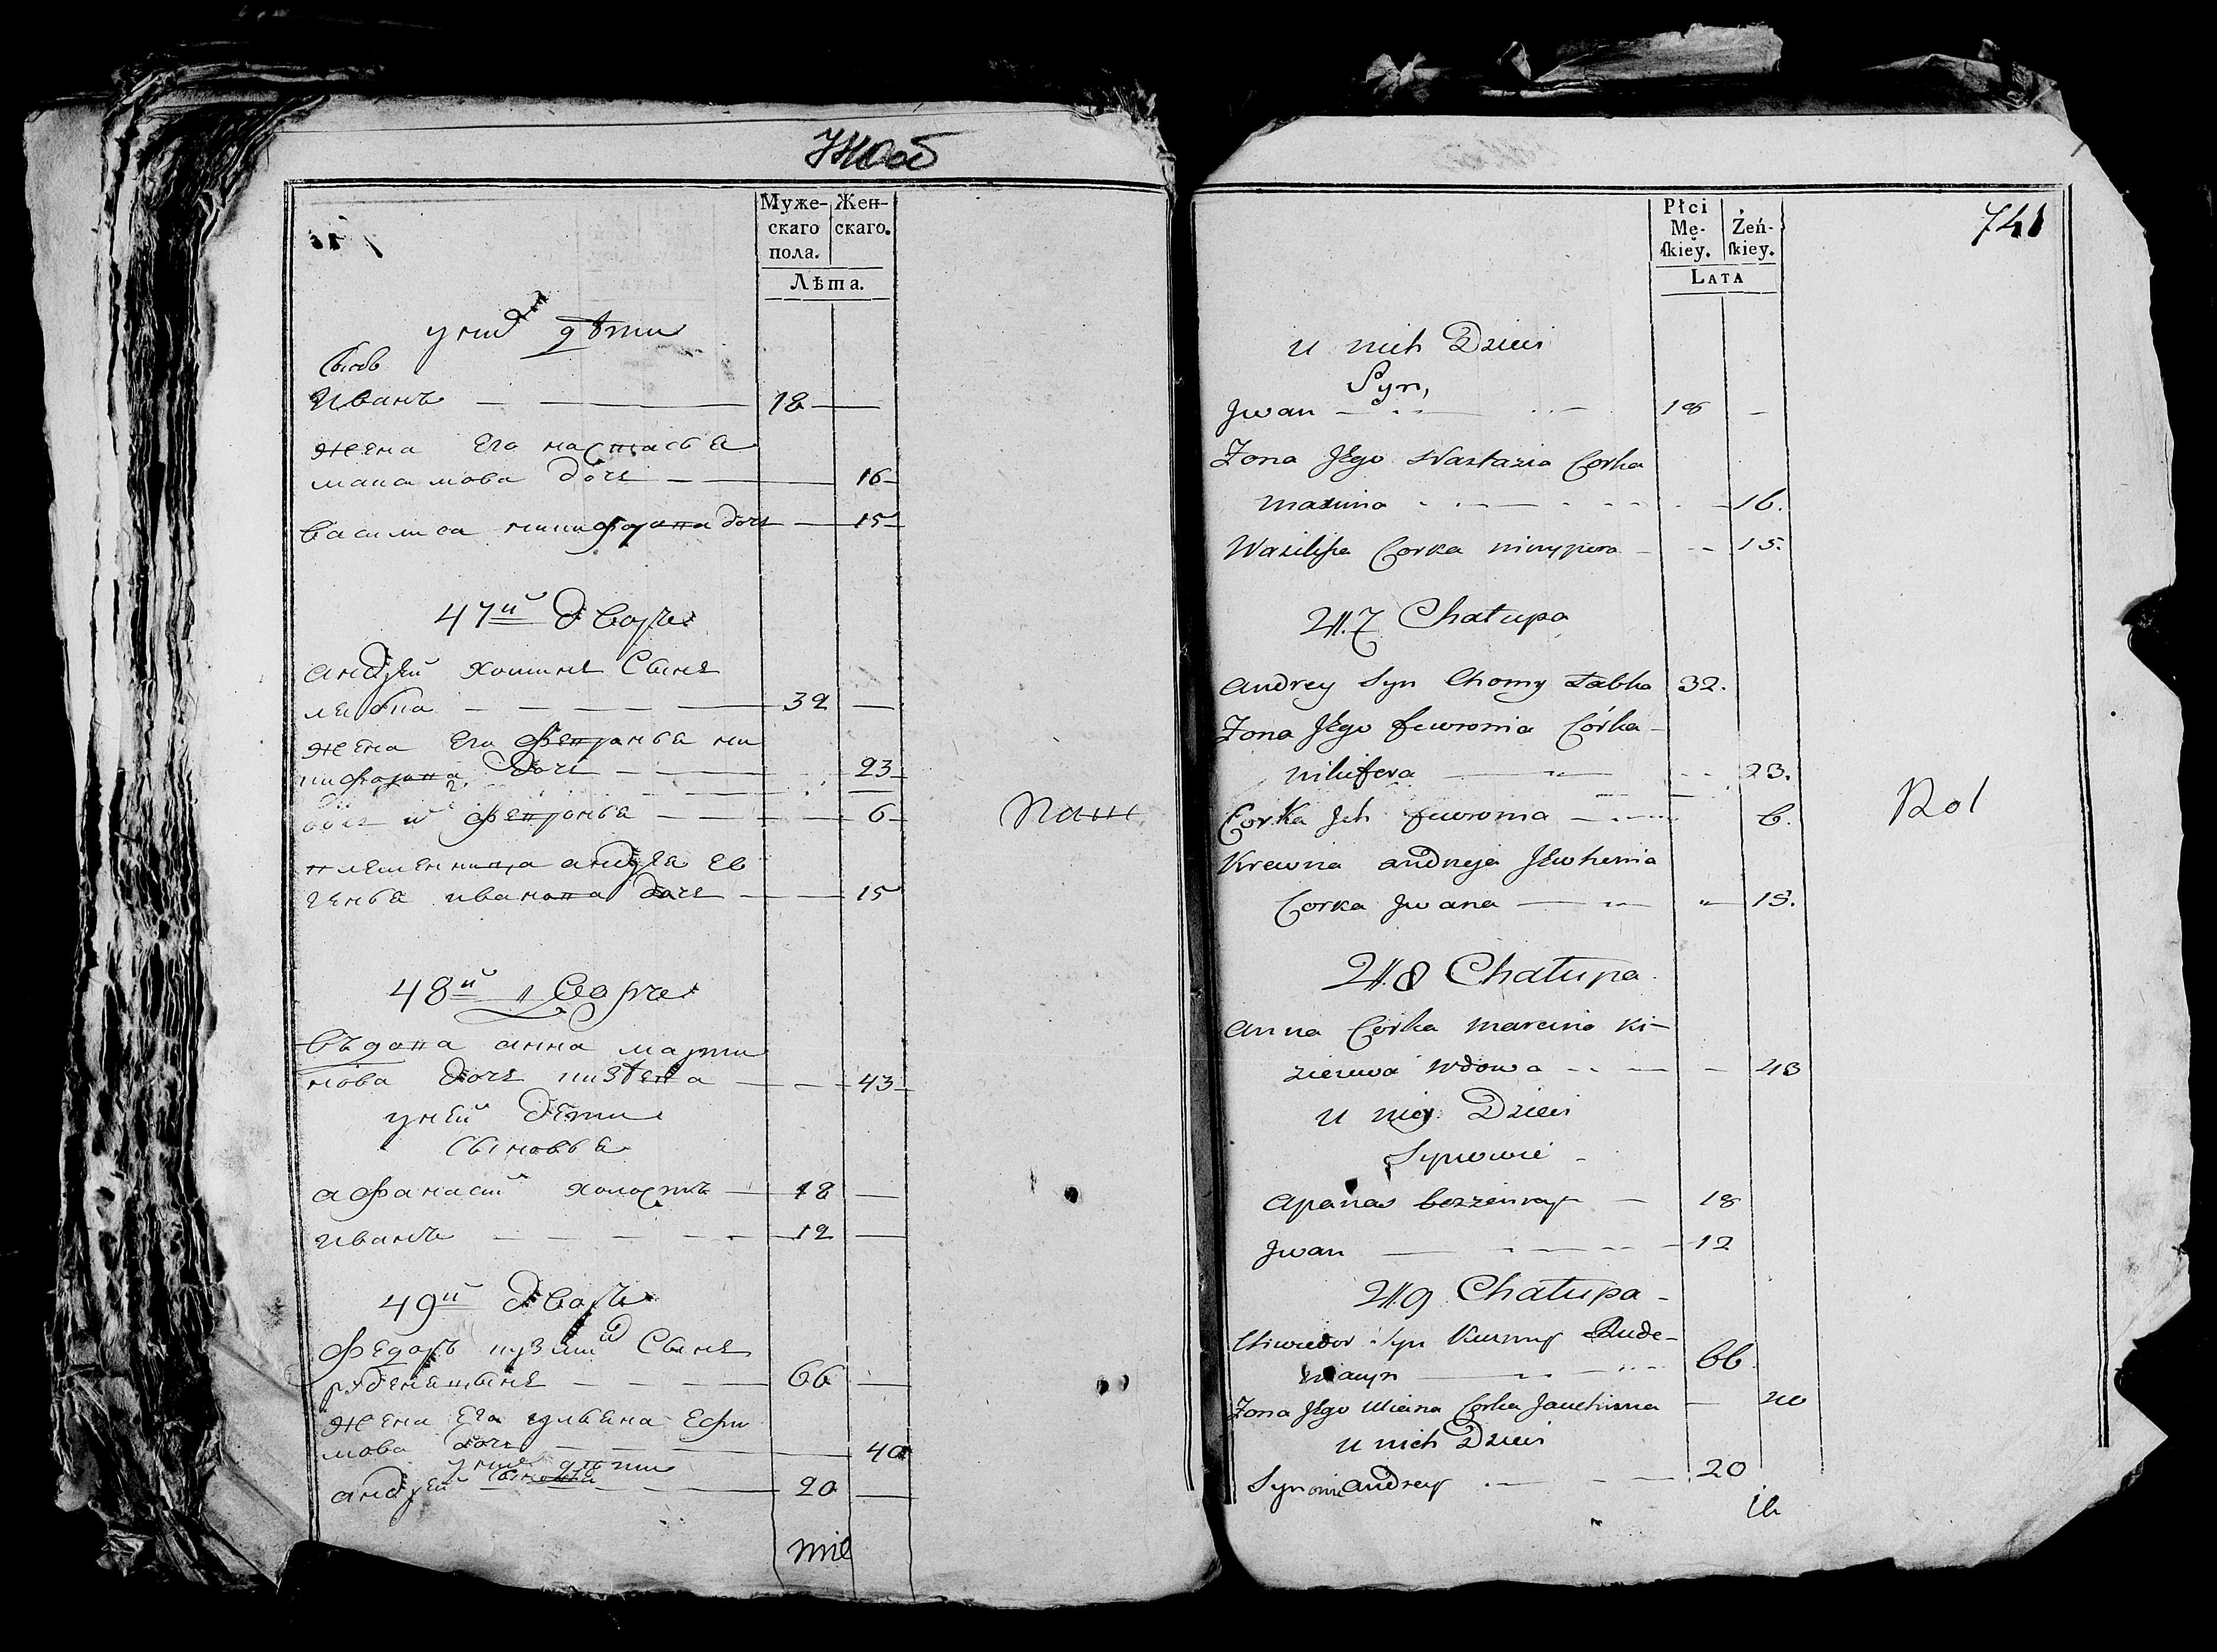 740об
Муже-
скаго
пола.
Жен-
скаго.
Лѣта.
у них дѣти
Сынъ
Иванъ 18
жена его настасья
дочь 16
василиса дочь 15
47й дворъ
андрей хоминъ Сынъ
32
жена его февронья ни
дочь 23
дочь их февронья 6
племенница андрея ев
генья иванова дочь 15
48й дворъ
въдова анна марти
нова дочь 43
у ней дети
Сыновья
афанасий холостъ 18
иванъ 12
49й дворъ
Федоръ Сынъ
66
жена его ульяна
мова дочь 40
у них дети
андрей сыновья 20
741
Płci
Mę-
skiey.
Żeń-
skiey.
LATA
u nich Dzieci
Syn,
Jwan 18
Zona Jego Nastazia Corka
Maxima 16.
Wasilissa Corka 15.
47 Chałupa
Andrey Syn Chomy 32.
Zona Jego fewronia Córka
nikifera 23.
Corka Jch fewronia 6.
Krewna andreja Jewhenia
Corka Jwana 15.
Rol
48 Chałupa
Anna Córka Marcina Ki-
Wdowa 43
u niey Dzieci
Synowie
Apanas bezzenny 18
Jwan 12
49 Chałupa
Chwiedor Syn Kuzmy Rude-
66.
Zona Jego Uliana Corka 40
u nich Dzieci
Synowie andrey 20